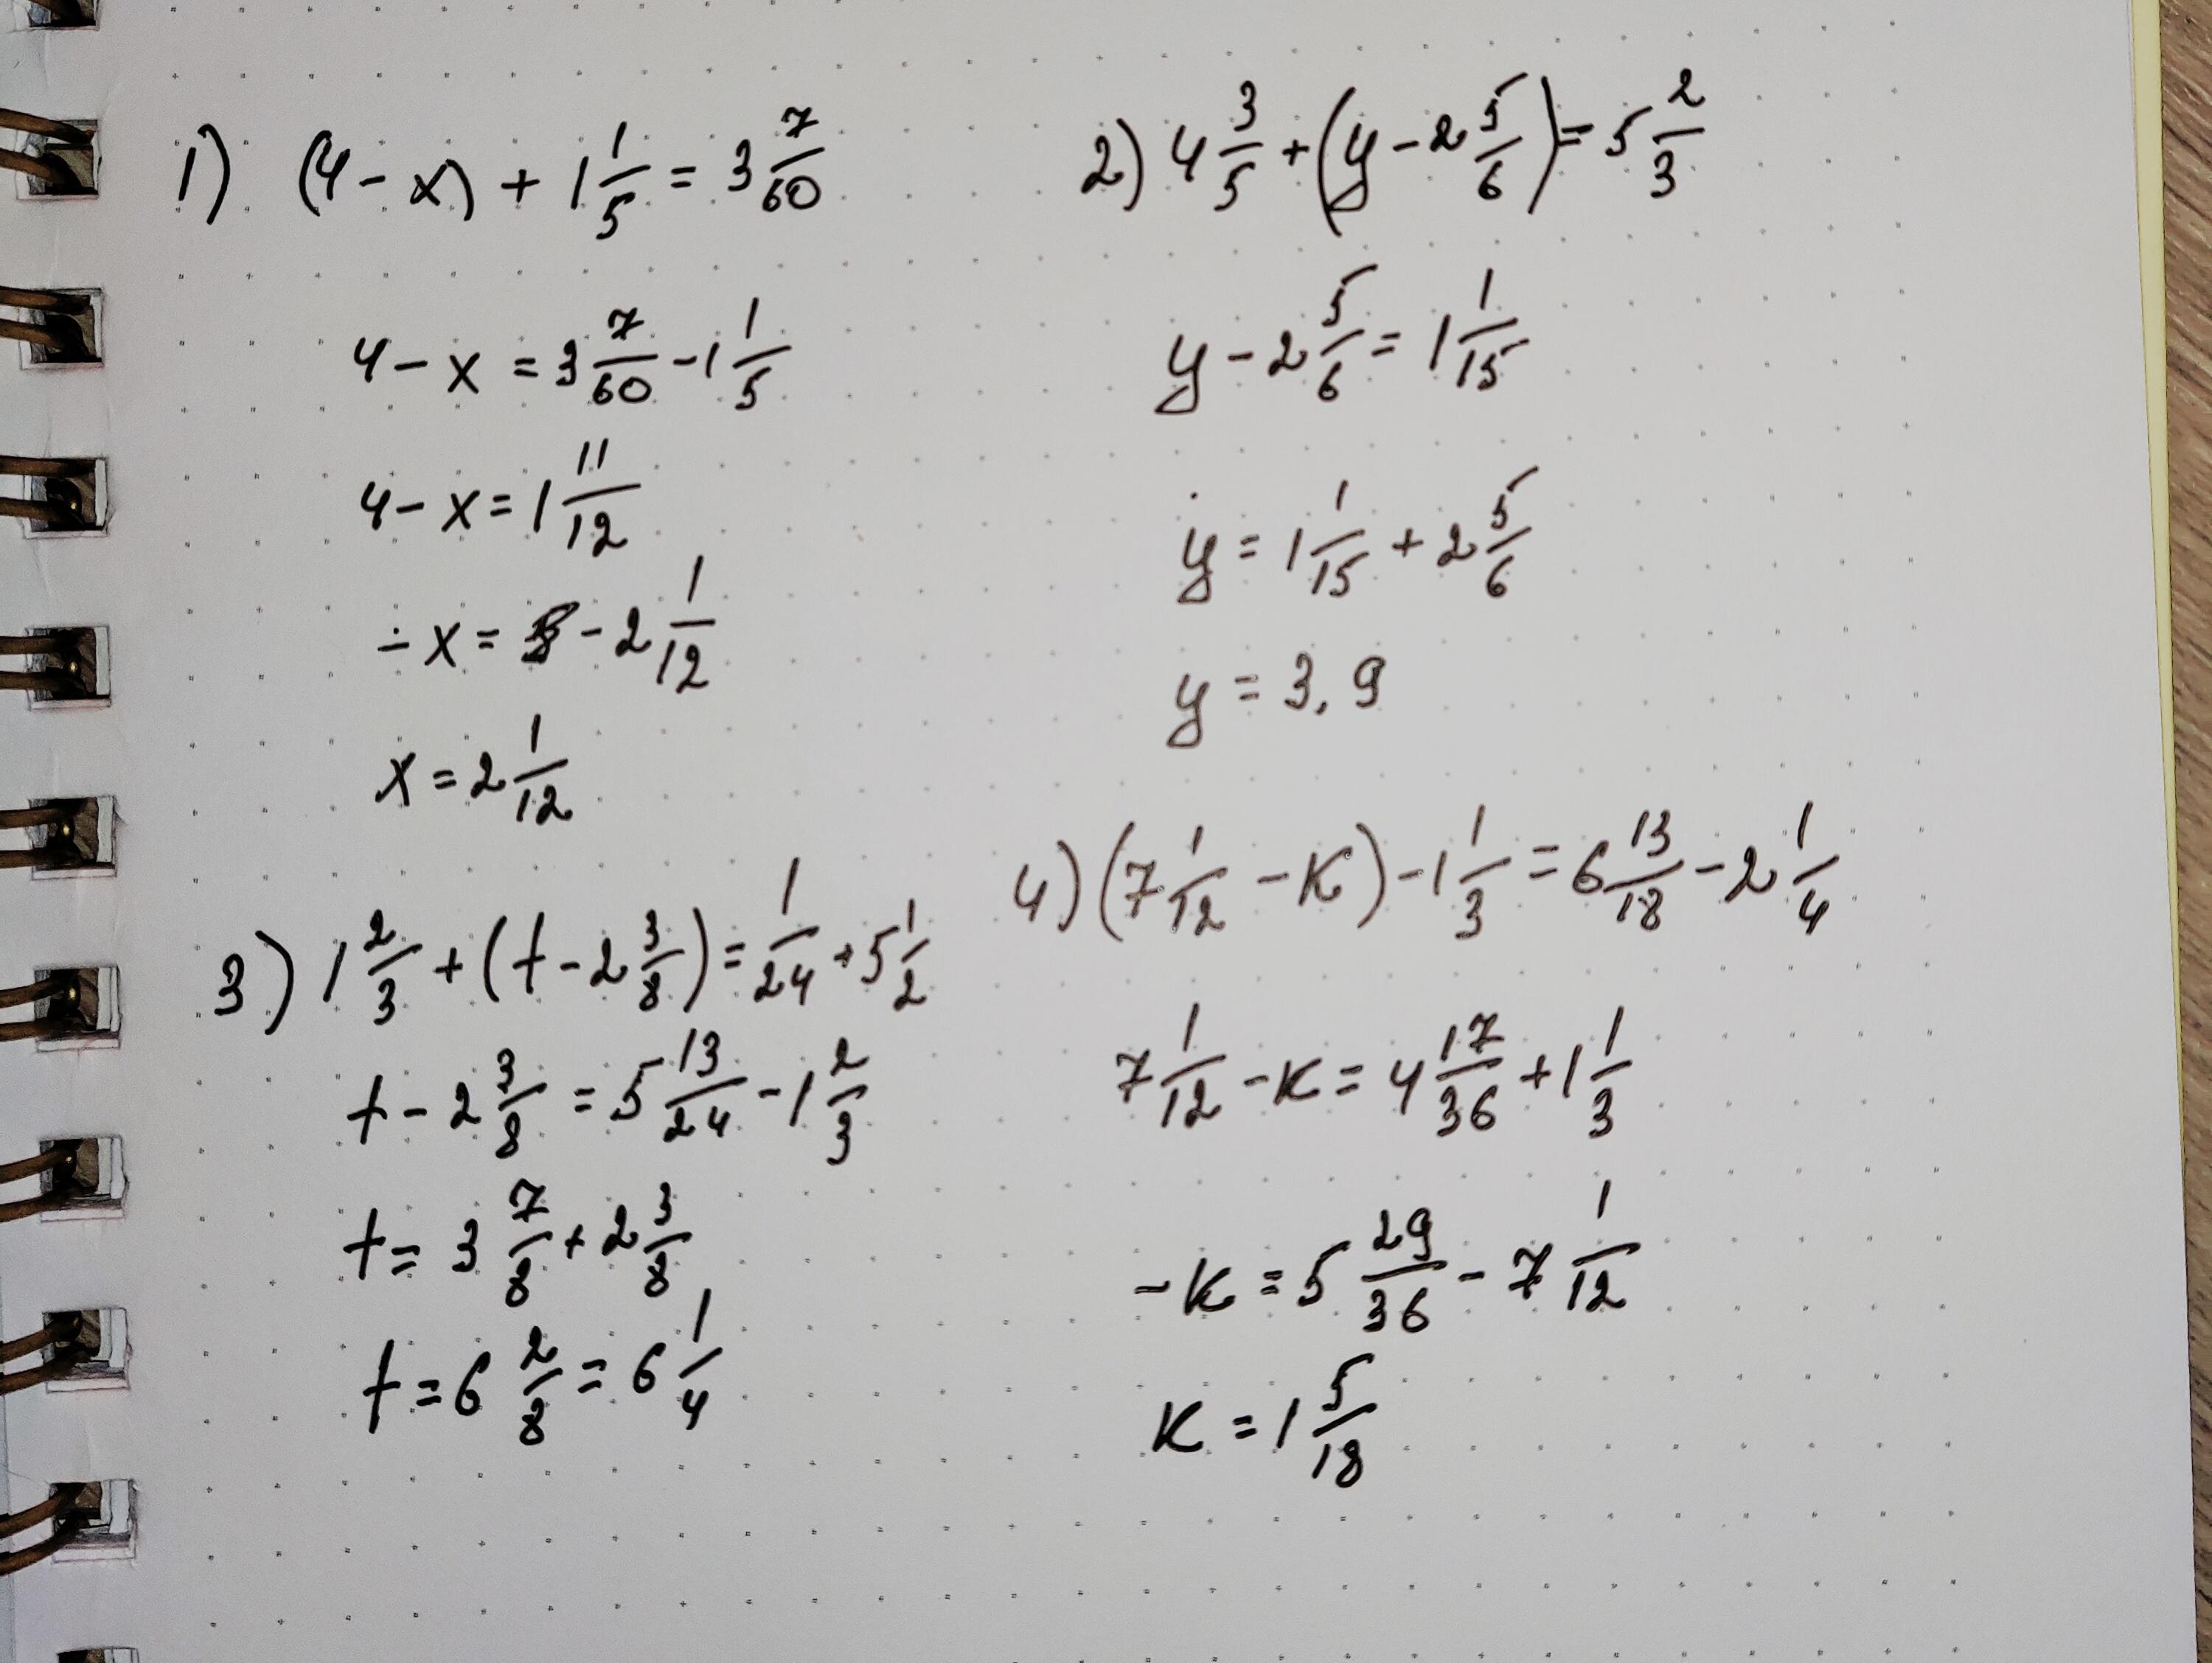 1) (4 - x) + 1 1/5 = 3 7/60
4 - x = 3 7/60 - 1 1/5
4 - x = 1 11/12
- x = - 2 1/12
x = 2 1/12
2) 4 3/5 + (y - 2 5/6) = 5 2/3
y - 2 5/6 = 1 1/15
y = 1 1/15 + 2 5/6
y = 3,9
3) 1 2/3 + (t - 2 3/8) = 1/24 + 5 1/2
t - 2 3/8 = 5 13/24 - 1 2/3
t = 3 7/8 + 2 3/8
t = 6 2/8 = 6 1/4
4) (7 1/12 - K) - 1 1/3 = 6 13/18 - 2 1/4
7 1/12 - K = 4 17/36 + 1 1/3
- K = 5 29/36 - 7 1/12
K = 1 5/18